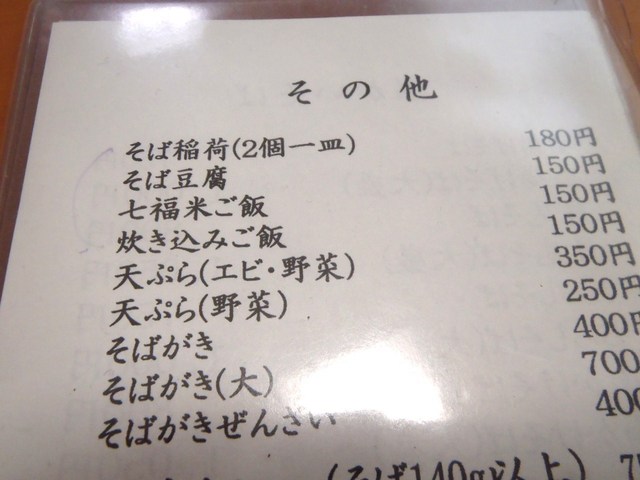 その他
そば稲荷(2個一皿) 180円
そば豆腐 150円
七福米ご飯 150円
炊き込みご飯 150円
天ぷら(エビ・野菜) 350円
天ぷら(野菜) 250円
そばがき 400円
そばがき(大) 700
そばがきぜんざい 400
(そば140g以上)